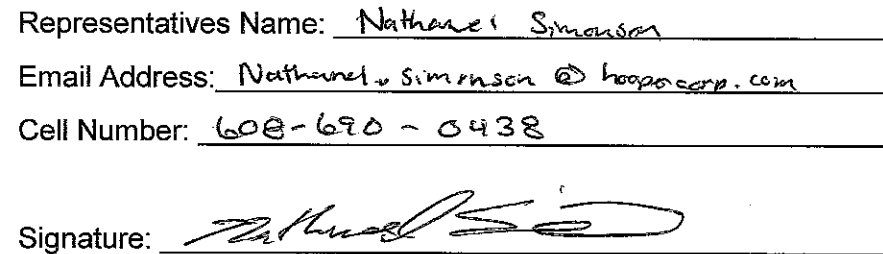 Representatives Name: Nathanel Simonson
Email Address: Nathanel.Simonson @ hoopercorp.com
Cell Number: 608-690-0438
Signature: